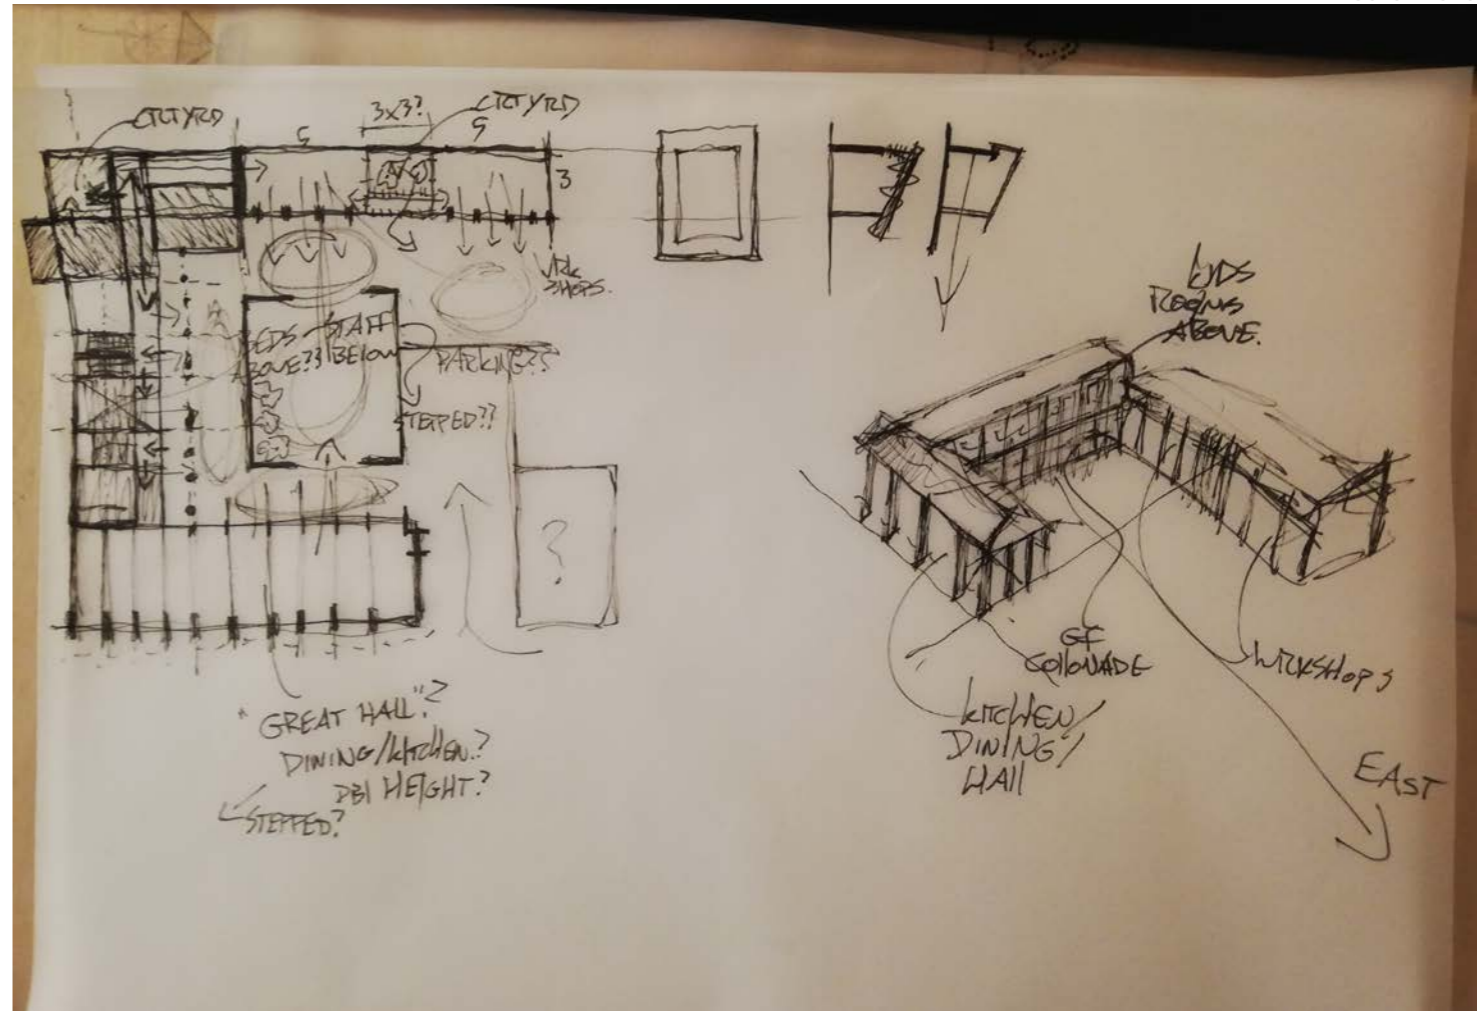 CRTYRD
3x3?
CRTYRD
5
5
3
WRK
SHOPS.
BEDS
ABOVE??
STAFF
BELOW
PARKING??
STEPPED??
?
"GREAT HALL"?
DINING/KITCHEN?
DBl HEIGHT?
STEPPED?
KIDS
ROOMS
ABOVE.
GF
COLLONADE
WRKSHOPS
KITCHEN/
DINING/
HAll
EAST